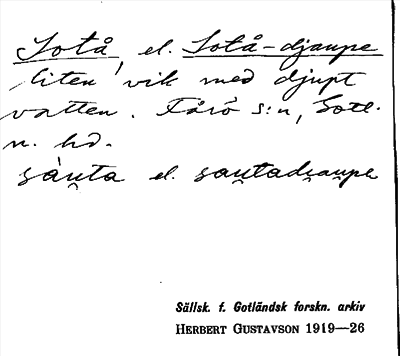 Sotå, el. Sotå-djaupe
liten vik med djupt
vatten. Fårö s:n, Gotl.
n. hd.
sàu̯ta el. sau̯tadi̯au̯pe
Sällsk. f. Gotländsk forskn. arkiv
HERBERT GUSTAVSON 1919—26